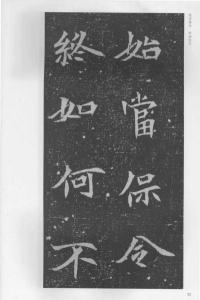 始當保令
終如何不